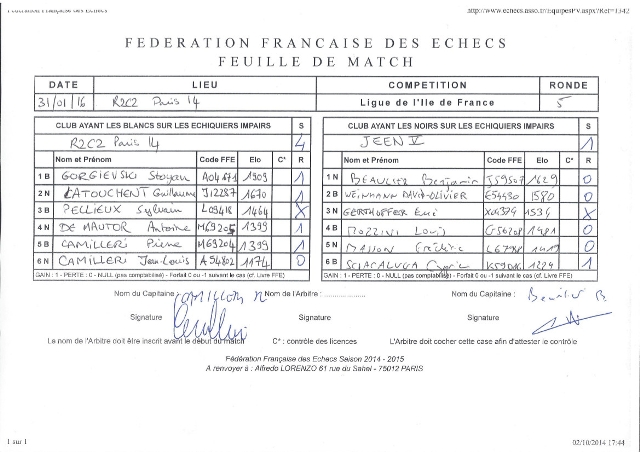 http://www.echecs.asso.fr/EquipesPV.aspx?Ref=1342
FEDERATION FRANCAISE DES ECHECS
FEUILLE DE MATCH
DATE LIEU COMPETITION RONDE
31/01/16 R2C2 Paris 14 Ligue de l'Ile de France 5
CLUB AYANT LES BLANCS SUR LES ECHIQUIERS IMPAIRS S CLUB AYANT LES NOIRS SUR LES ECHIQUIERS IMPAIRS S
R2C2 Paris 14 4 JEEN V 1
Nom et Prénom Code FFE Elo C* R Nom et Prénom Code FFE Elo C* R
1 B GORGIEVSKI Stoyan A04171 1909 1 1 N BEAULIER Benjamin J59507 1629 0
2 N LATOUCHENT Guillaume J12287 1670 1 2 B WEINMANN DAVID-OLIVIER E54430 1580 0
3 B PELLIEUX Sylvain L09418 1464 X 3 N GERTHOFFER 1534 X
4 N DE HAUTOR Antoine M69205 1399 1 4 B MOZZINI Louis G56208 0
5 B CAMILLERI Pierre M69204 1399 1 5 N MASSON Frédéric L6798 0
6 N CAMILLERI Jean-Louis A54802 1174 0 6 B SCIACALUGA 1224 1
GAIN : 1 - PERTE : 0 - NULL (pas comptabilisé) - Forfait 0 ou -1 suivant le cas (cf. Livre FFE) GAIN : 1 - PERTE : 0 - NULL (pas comptabilisé) - Forfait 0 ou -1 suivant le cas (cf. Livre FFE)
Nom du Capitaine : Nom de l'Arbitre : Nom du Capitaine :
Signature Signature Signature
Le nom de l'Arbitre doit être inscrit avant le début du match C* : contrôle des licences L'Arbitre doit cocher cette case afin d'attester le contrôle
Fédération Française des Echecs Saison 2014 - 2015
A renvoyer à : Alfredo LORENZO 61 rue du Sahel - 75012 PARIS
1 sur 1 02/10/2014 17:44